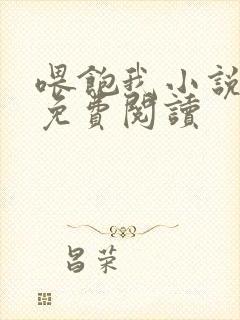 喂飽我小說
免費閱讀
昌荣